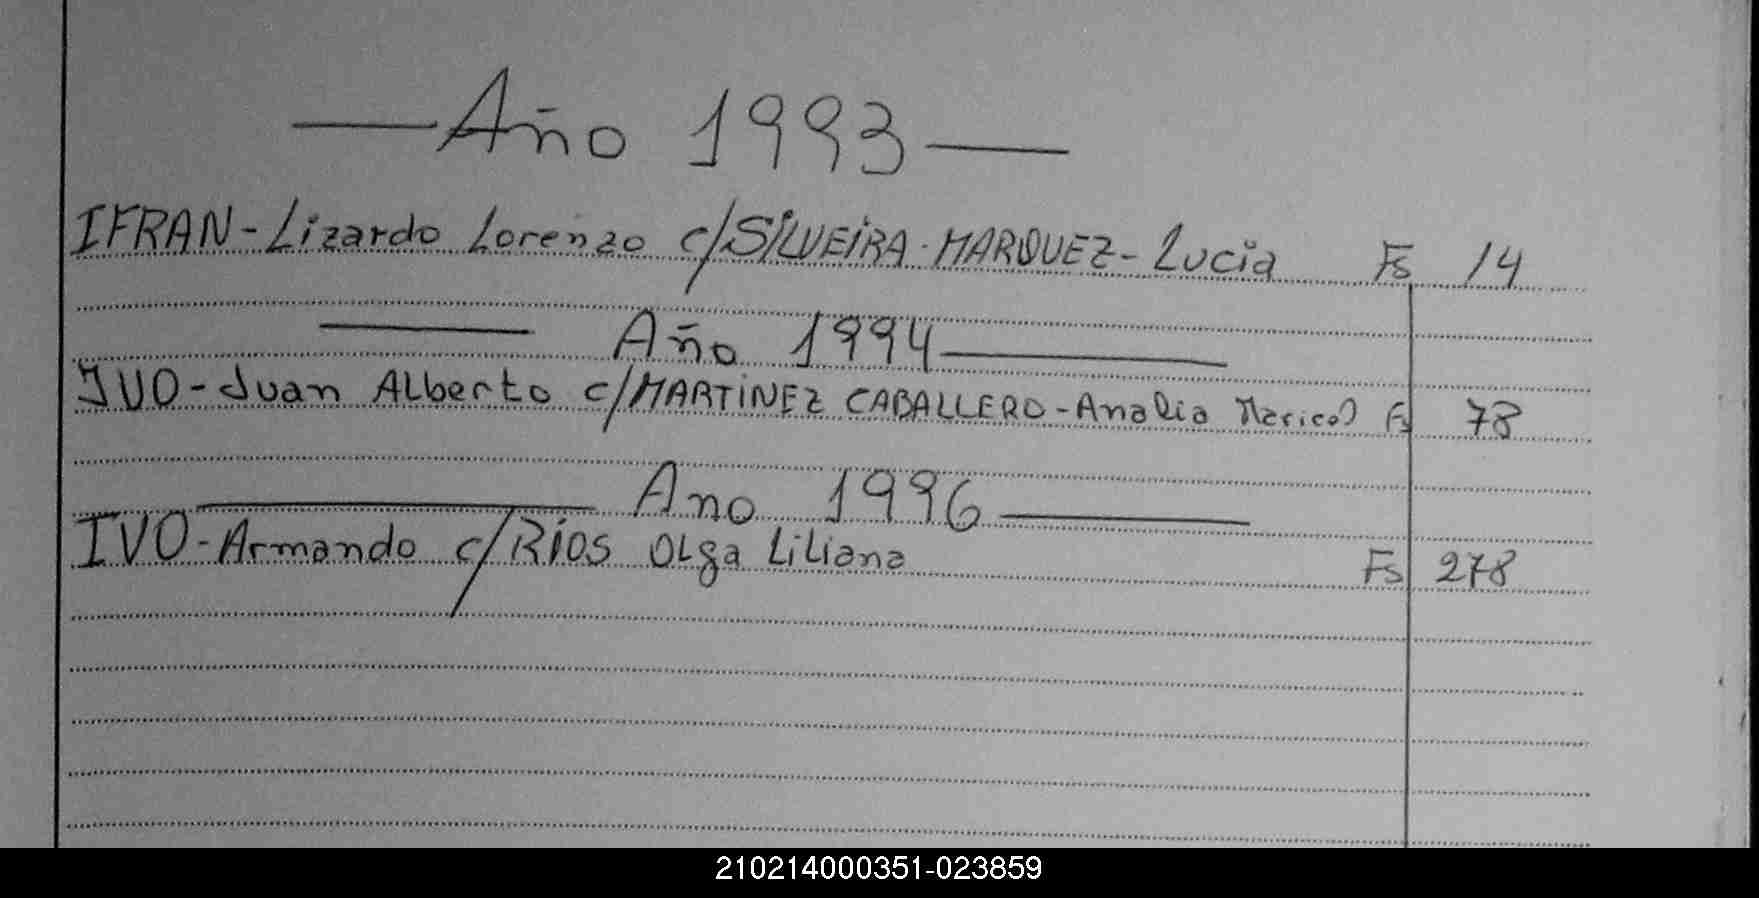 — Año 1993 —
IFRAN - Lizardo Lorenzo c/ SILVEIRA - MARQUEZ - Lucia Fs 14
— Año 1994 —
IVO - Juan Alberto c/ MARTINEZ CABALLERO - Analia Fs 78
— Ano 1996 —
IVO - Armando c/ RÍOS OLga Liliana Fs 278
210214000351-023859